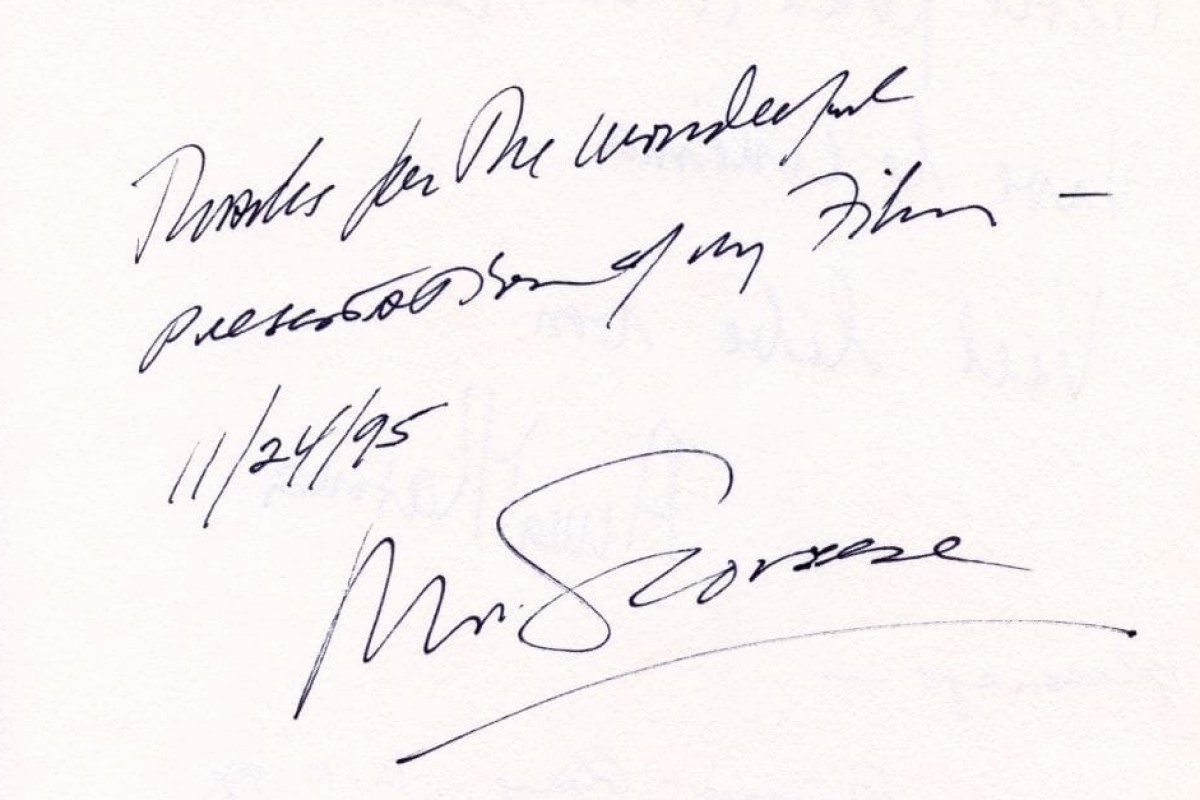 Thanks for The wonderful
presentation of my Film –
11/24/95
M. Scorsese